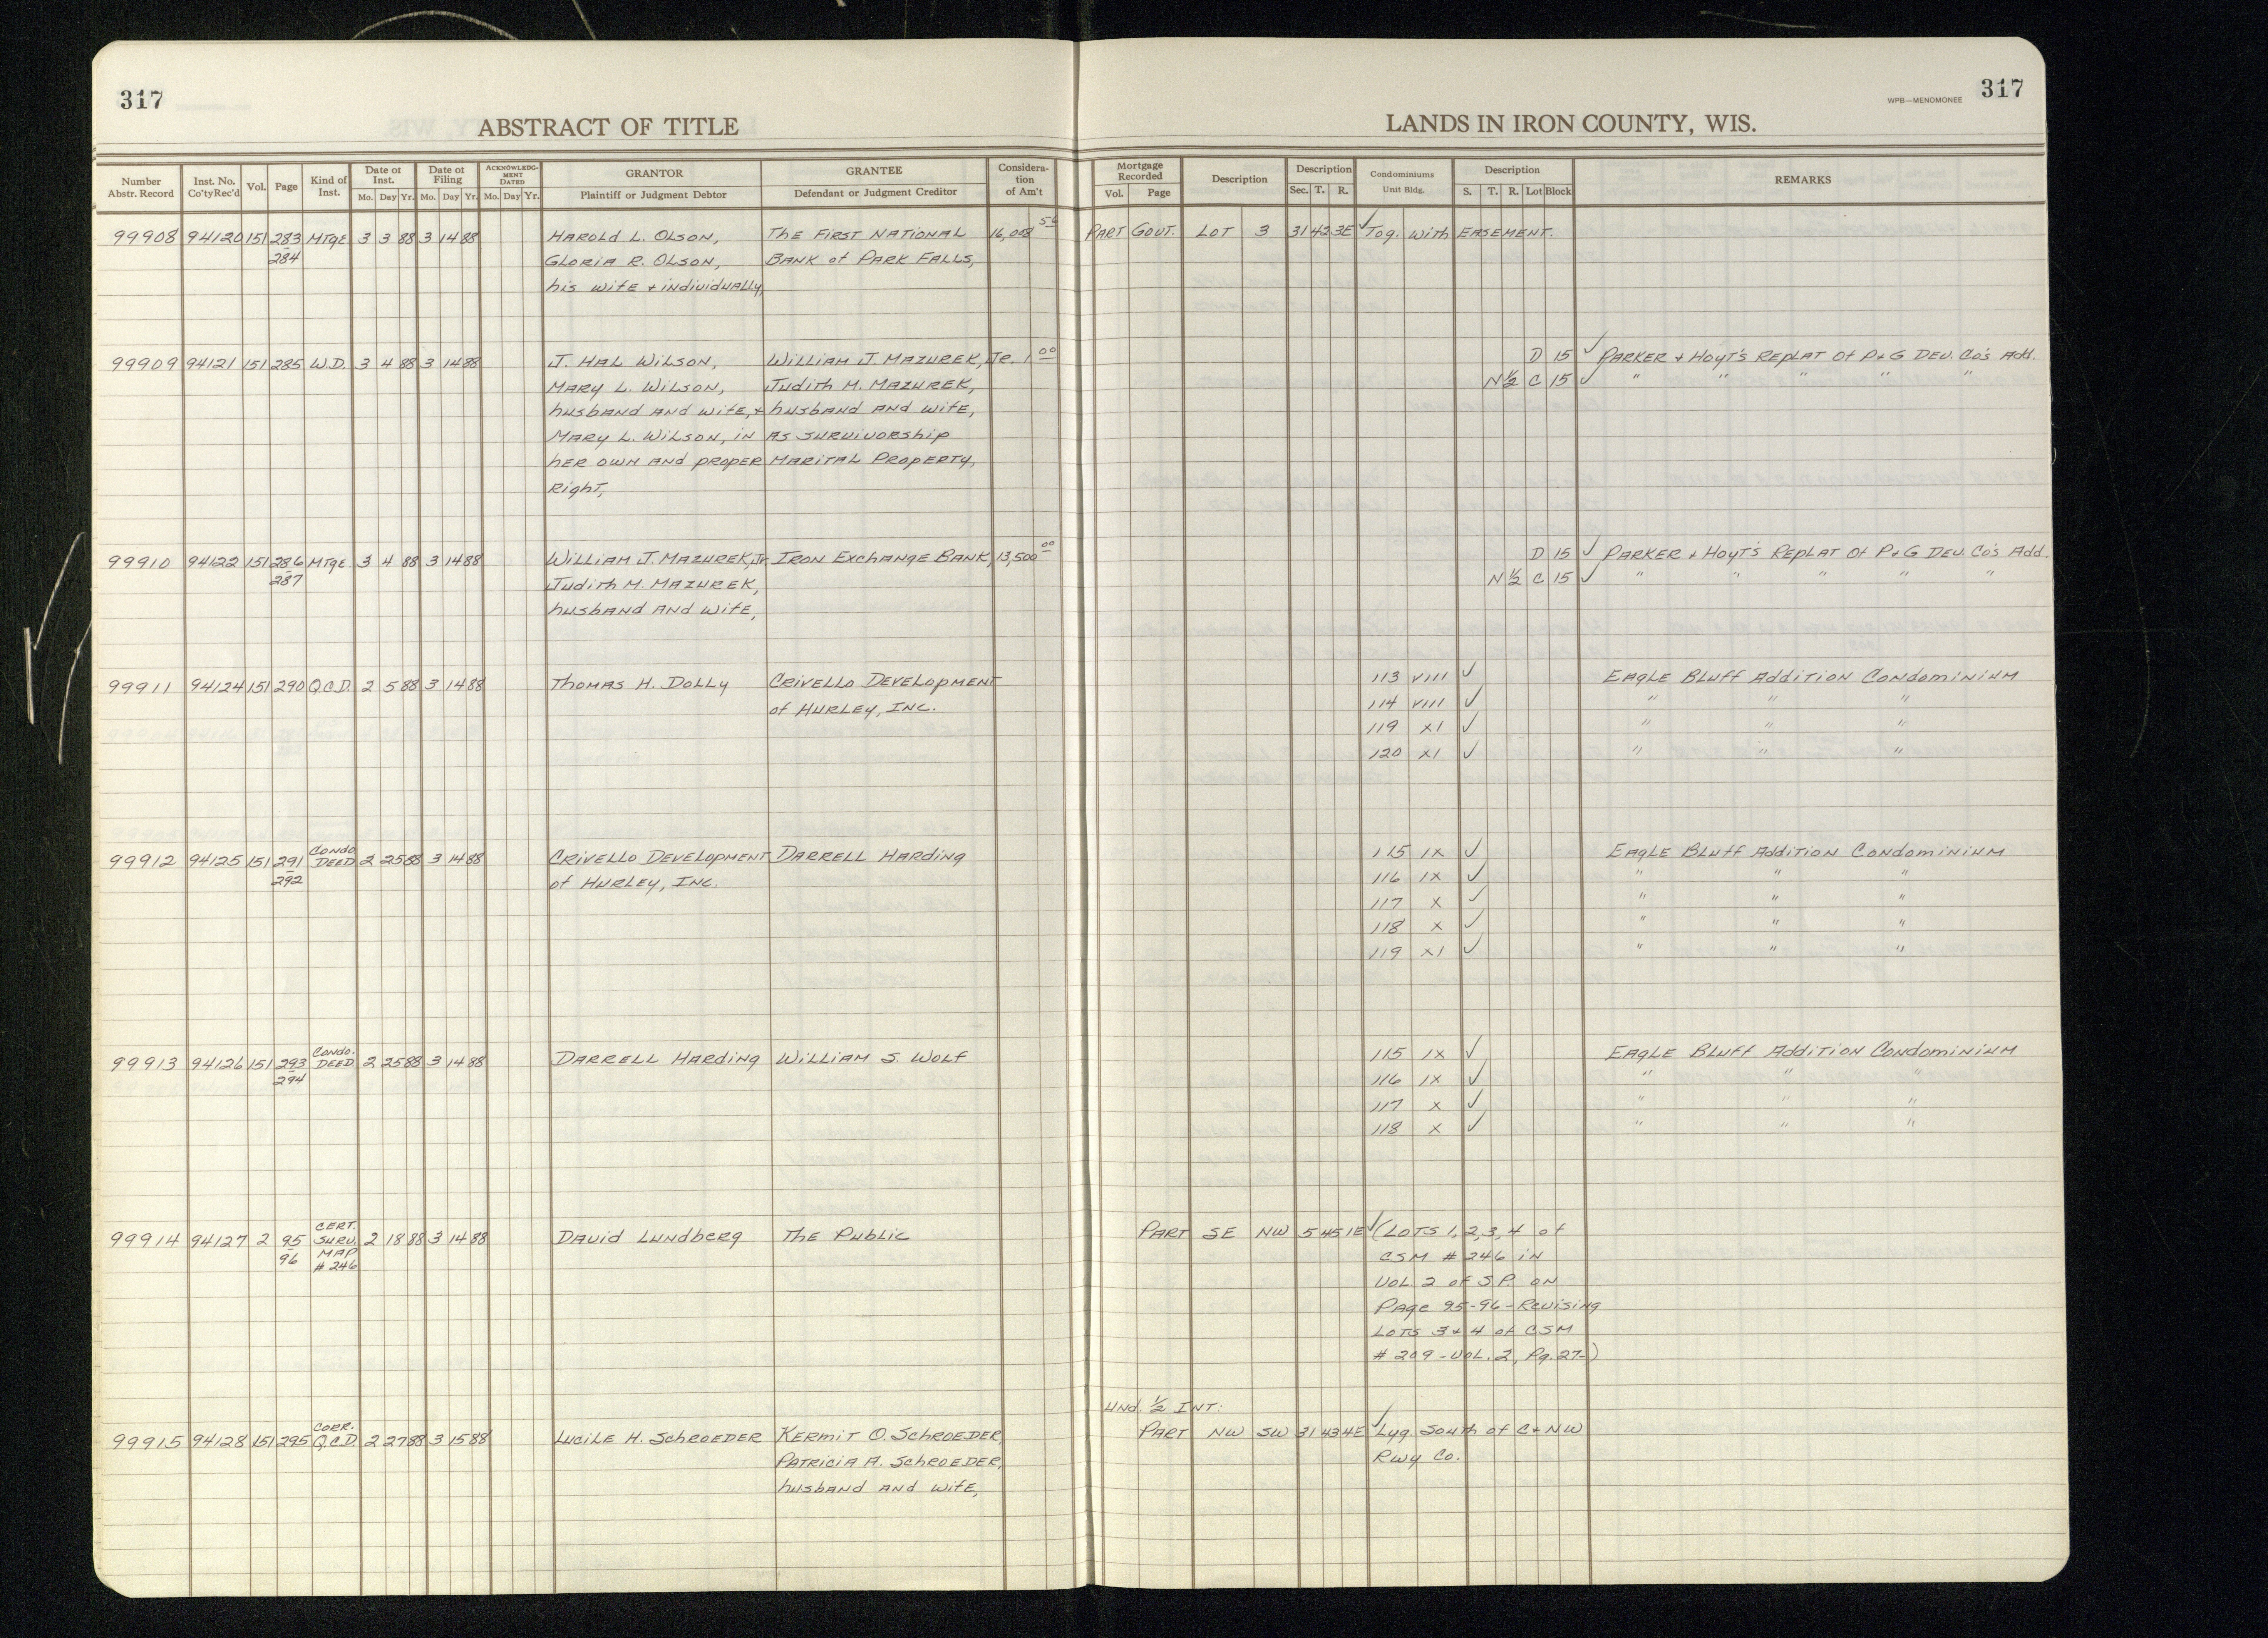 317
317
WPB—MENOMONEE
ABSTRACT OF TITLE
LANDS IN IRON COUNTY, WIS.
Number Abstr. Record | Inst. No. Co'tyRec'd | Vol. | Page | Kind of Inst. | Date of Inst. Mo. Day Yr. | Date of Filing Mo. Day Yr. | ACKNOWLEDGMENT DATED Mo. Day Yr. | GRANTOR Plaintiff or Judgment Debtor | GRANTEE Defendant or Judgment Creditor | Consideration of Am't | Mortgage Recorded Vol. Page | Description | Description Sec. T. R. | Condominiums Unit Bldg. | Description S. T. R. Lot Block | REMARKS
99908 94120 151 283 MTGE 3 3 88 3 14 88 HAROLD L. OLSON, THE FIRST NATIONAL 16,008 56 PART GOVT. LOT 3 31 42 3E ✓ Tog. with EASEMENT.
284 GLORIA R. OLSON, BANK of PARK FALLS,
his wife + individually,
99909 94121 151 285 W.D. 3 4 88 3 14 88 J. HAL WILSON, WILLIAM J. MAZUREK, Jr. 1 00 D 15 ✓ PARKER + Hoyt's Replat of P+G Dev. Co's Add.
MARY L. WILSON, Judith M. MAZUREK, N ½ C 15 ✓ " " " " "
husband AND wife, + husband AND wife,
MARY L. WILSON, in AS SURVIVORship
her own AND proper MARITAL PROPERTY,
Right,
99910 94122 151 286 MTGE 3 4 88 3 14 88 WILLIAM J. MAZUREK, Jr. IRON EXCHANGE BANK, 13,500 00 D 15 ✓ PARKER + Hoyt's Replat of P+G Dev. Co's Add.
287 Judith M. MAZUREK, N ½ C 15 ✓ " " " " "
husband AND wife,
99911 94124 151 290 Q.C.D. 2 5 88 3 14 88 THOMAS H. DOLLY CRIVELLO DEVELOPMENT 113 VIII ✓ EAGLE BLUFF ADDITION CONDOMINIUM
of HURLEY, INC. 114 VIII ✓ " " "
119 XI ✓ " " "
120 XI ✓ " " "
99912 94125 151 291 CONDO DEED 2 25 88 3 14 88 CRIVELLO DEVELOPMENT DARRELL HARDING 115 IX ✓ EAGLE BLUFF ADDITION CONDOMINIUM
292 of HURLEY, INC. 116 IX ✓ " " "
117 X ✓ " " "
118 X ✓ " " "
119 XI ✓ " " "
99913 94126 151 293 CONDO. DEED 2 25 88 3 14 88 DARRELL HARDING WILLIAM S. WOLF 115 IX ✓ EAGLE BLUFF ADDITION CONDOMINIUM
294 116 IX ✓ " " "
117 X ✓ " " "
118 X ✓ " " "
99914 94127 2 95 CERT. SURV. MAP # 246 2 18 88 3 14 88 DAVID LUNDBERG THE PUBLIC PART SE NW 5 45 1E ✓ (LOTS 1, 2, 3, 4 of
96 CSM # 246 IN
VOL. 2 of S.P. ON
Page 95-96 - Revising
LOTS 3 + 4 of CSM
# 209 - VOL. 2, Pg. 27-)
UND. ½ INT:
99915 94128 151 295 CORR. Q.C.D. 2 27 88 3 15 88 LUCILE H. SCHROEDER KERMIT O. SCHROEDER, PART NW SW 31 43 4E ✓ Lyg. South of C + NW
PATRICIA A. SCHROEDER, Rwy Co.
husband AND wife,